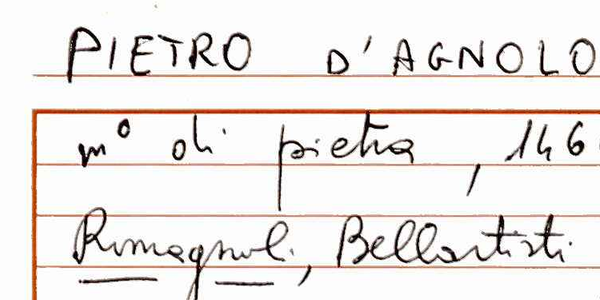 PIETRO D'AGNOLO
m° di pietra, 146
Romagnoli, Bellartisti